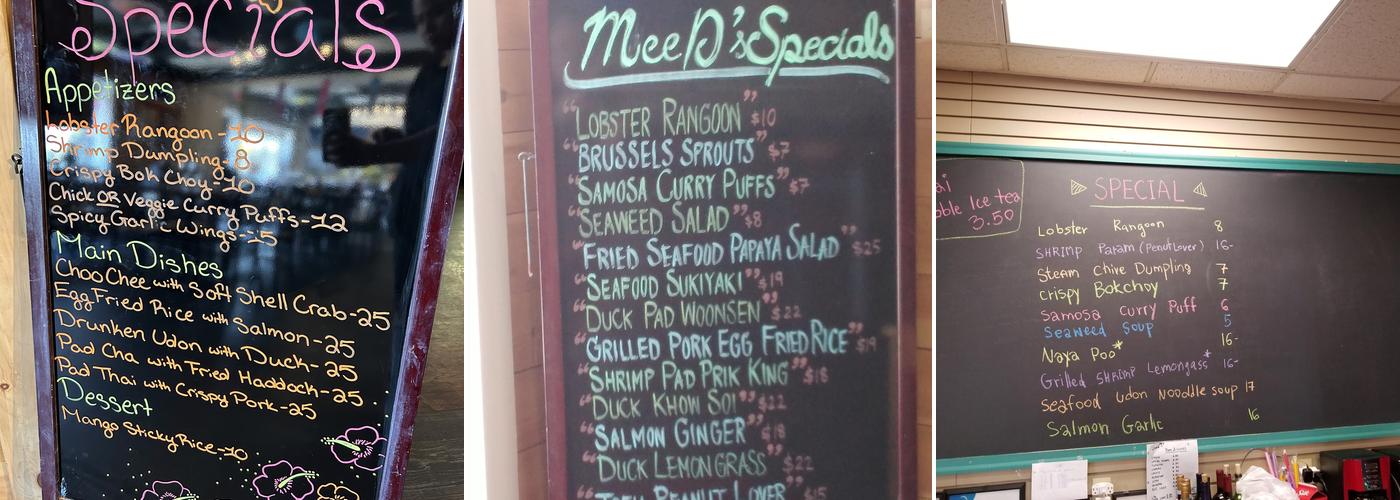 Specials
Appetizers
Lobster Rangoon - 10
Shrimp Dumpling - 8
Crispy Bok Choy - 10
Chick OR Veggie Curry Puffs - 12
Spicy Garlic Wings - 15
Main Dishes
Choo Chee with Soft Shell Crab - 25
Egg Fried Rice with Salmon - 25
Drunken Udon with Duck - 25
Pad Cha with Fried Haddock - 25
Pad Thai with Crispy Pork - 25
Dessert
Mango Sticky Rice - 10
MeeD's Specials
"LOBSTER RANGOON" $10
"BRUSSELS SPROUTS" $7
"SAMOSA CURRY PUFFS" $7
"SEAWEED SALAD" $8
"FRIED SEAFOOD PAPAYA SALAD" $25
"SEAFOOD SUKIYAKI" $19
"DUCK PAD WOONSEN" $22
"GRILLED PORK EGG FRIED RICE" $19
"SHRIMP PAD PRIK KING" $18
"DUCK KHOW SOI" $22
"SALMON GINGER" $18
"DUCK LEMONGRASS" $22
"TOFU PEANUT LOVER" $15
ble Ice tea
3.50
SPECIAL
Lobster Rangoon 8
SHRIMP Param (Penut Lover) 16-
Steam chive Dumpling 7
crispy Bokchoy 7
Samosa curry Puff 6
Seaweed Soup 5
Naya Poo* 16-
Grilled SHRIMP Lemongass* 16-
Seafood udon Nooddle soup 17
Salmon Garlic 16